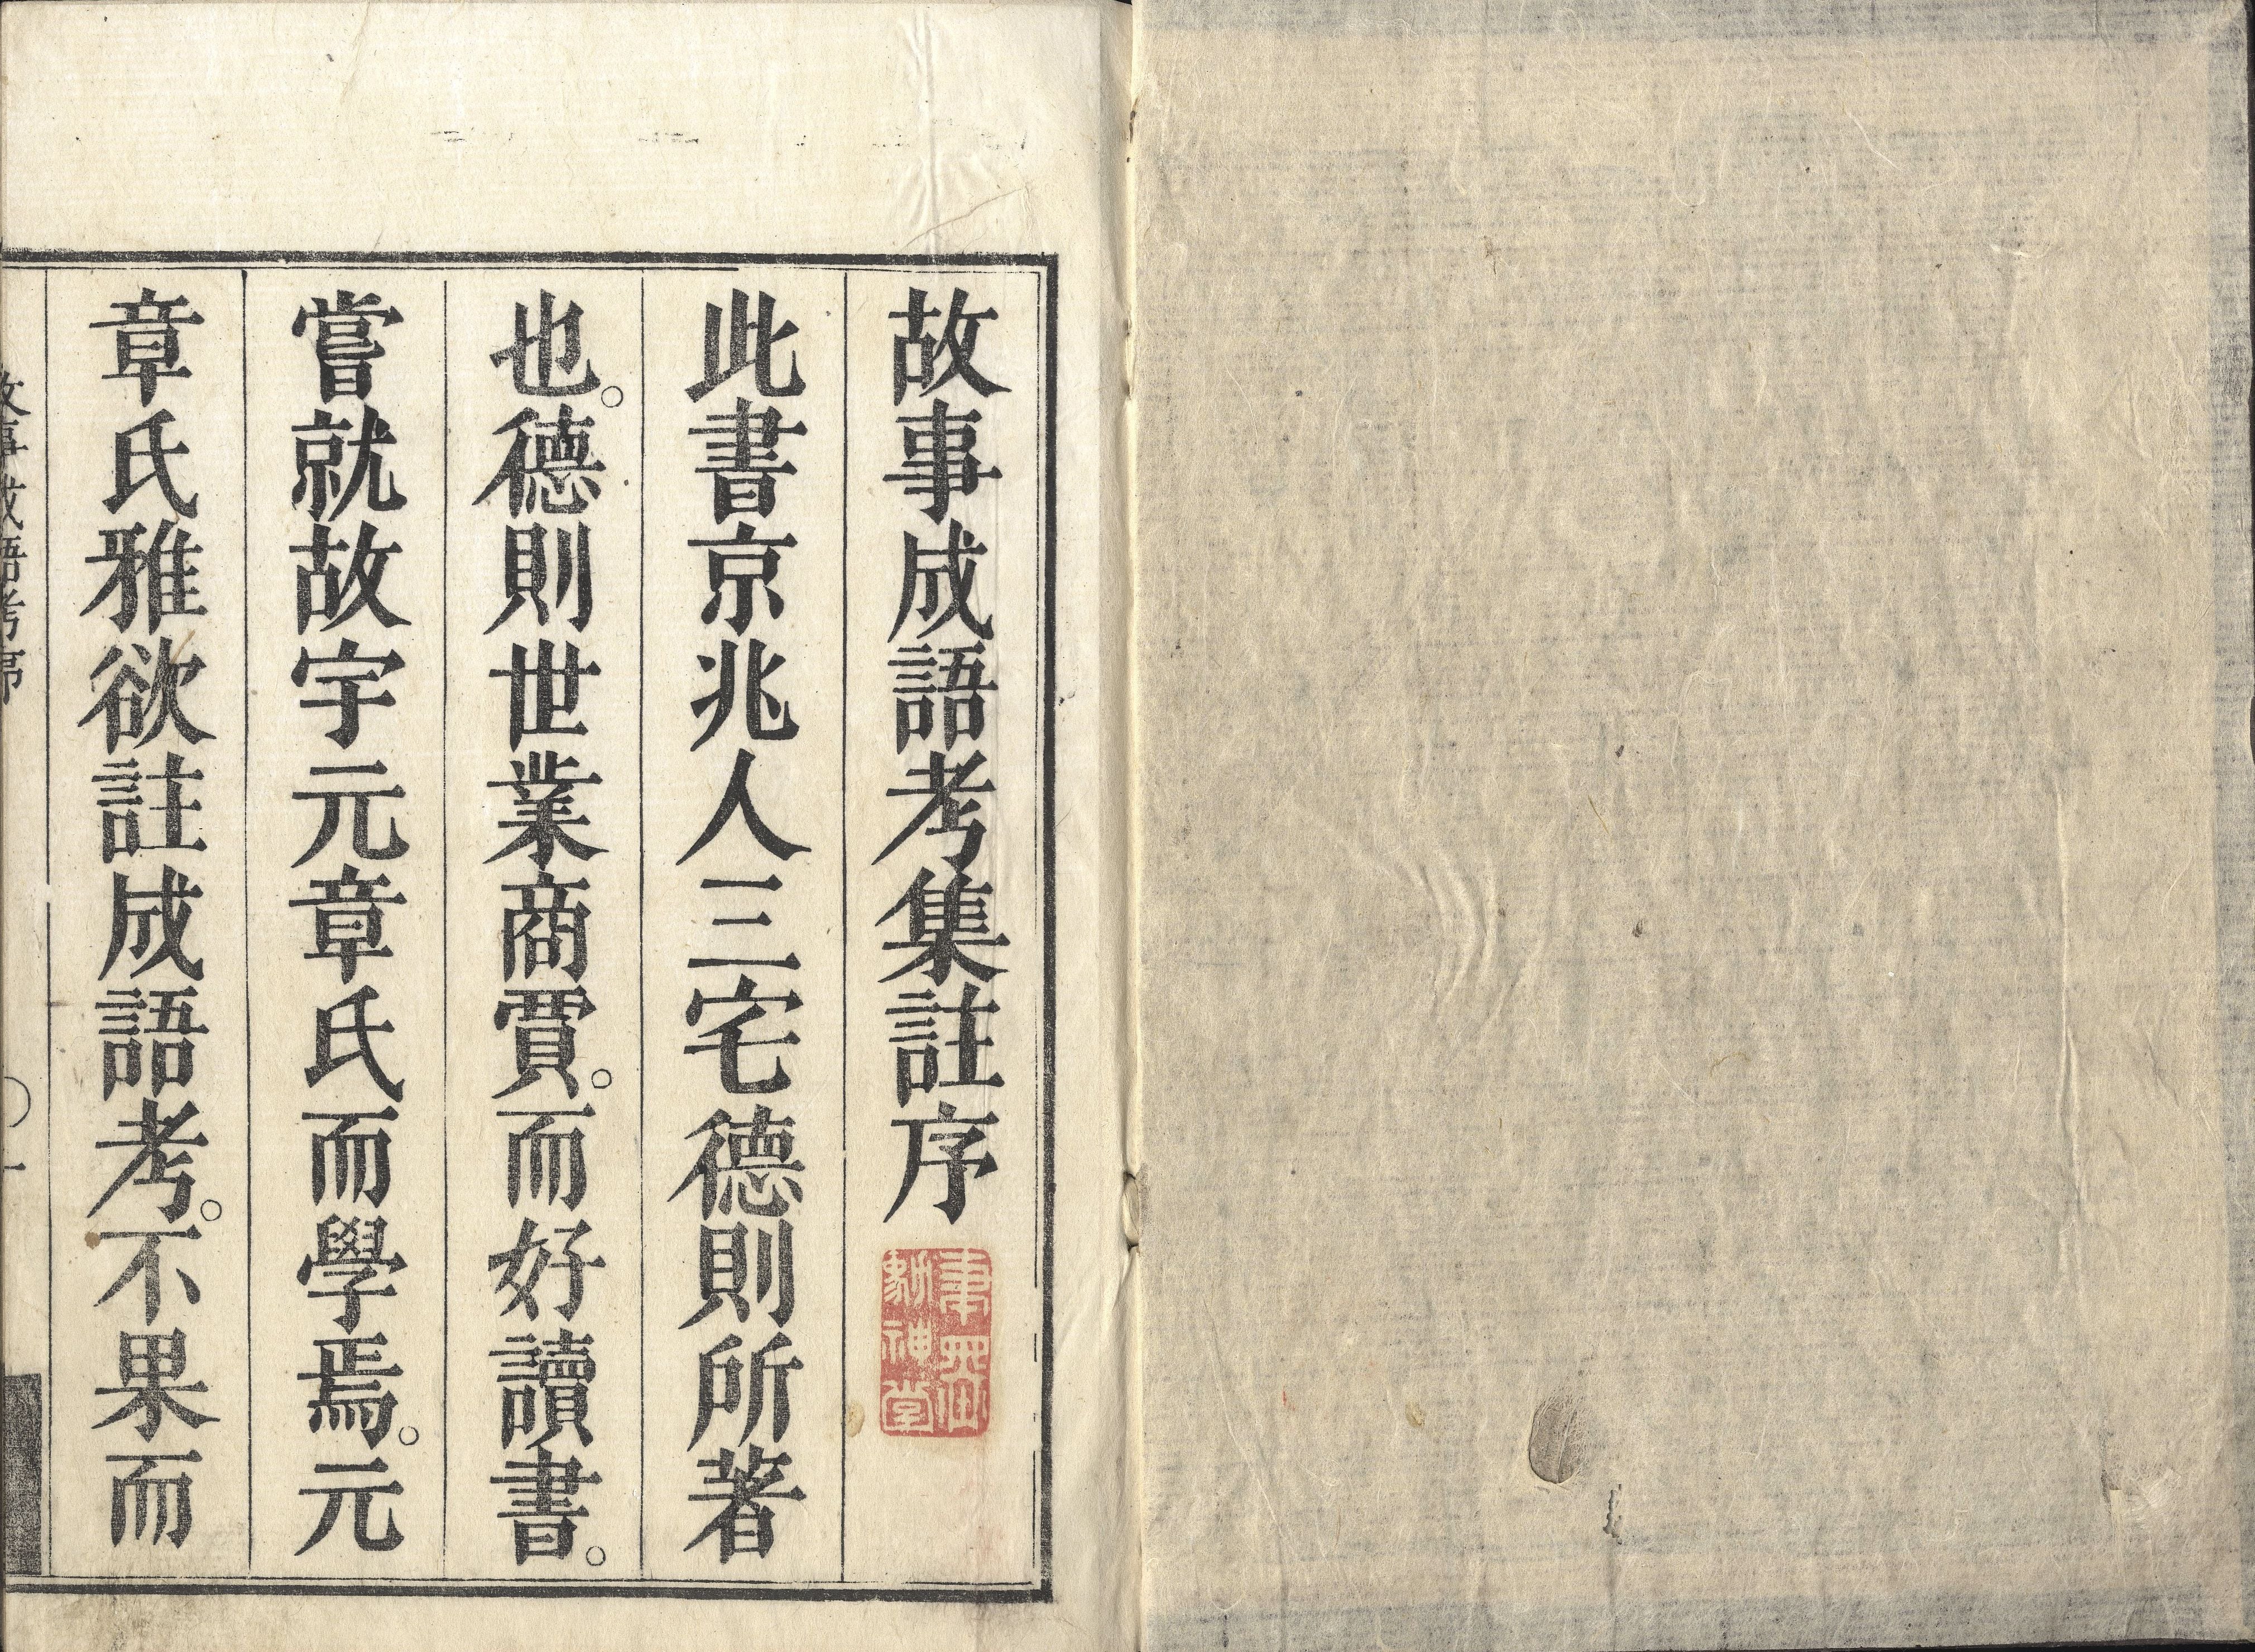 故事成語考集註序
此書京兆人三宅德則所著
也。德則世業商賈。而好讀書。
嘗就故宇元章氏而學焉。元
章氏雅欲註成語考。不果而
故事成語考序